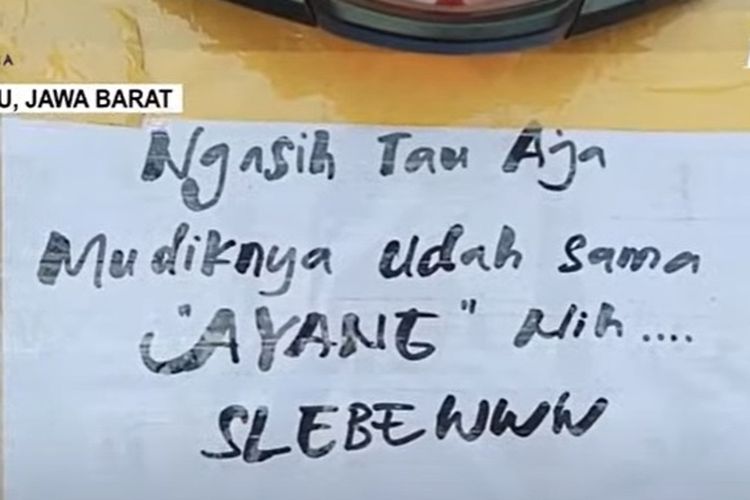 U, JAWA BARAT
Ngasih Tau Aja
Mudiknya udah sama
"AYANG" Nih....
SLEBEWWW